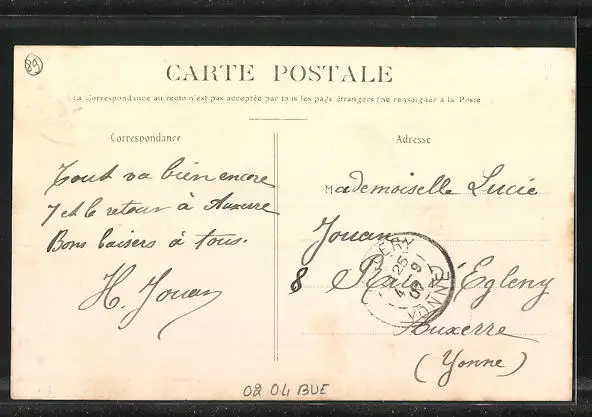 89
CARTE POSTALE
La Correspondance au recto n'est pas acceptée par tous les pays étrangers (se renseigner à la Poste
Correspondance
Tout va bien encore
7 et le retour à Auxerre
Bons baisers à tous.
H. Jouan
Adresse
Mademoiselle Lucie
Jouan
8 Rue d'Egleny
Auxerre
(Yonne)
YONNE
02 04 BUE